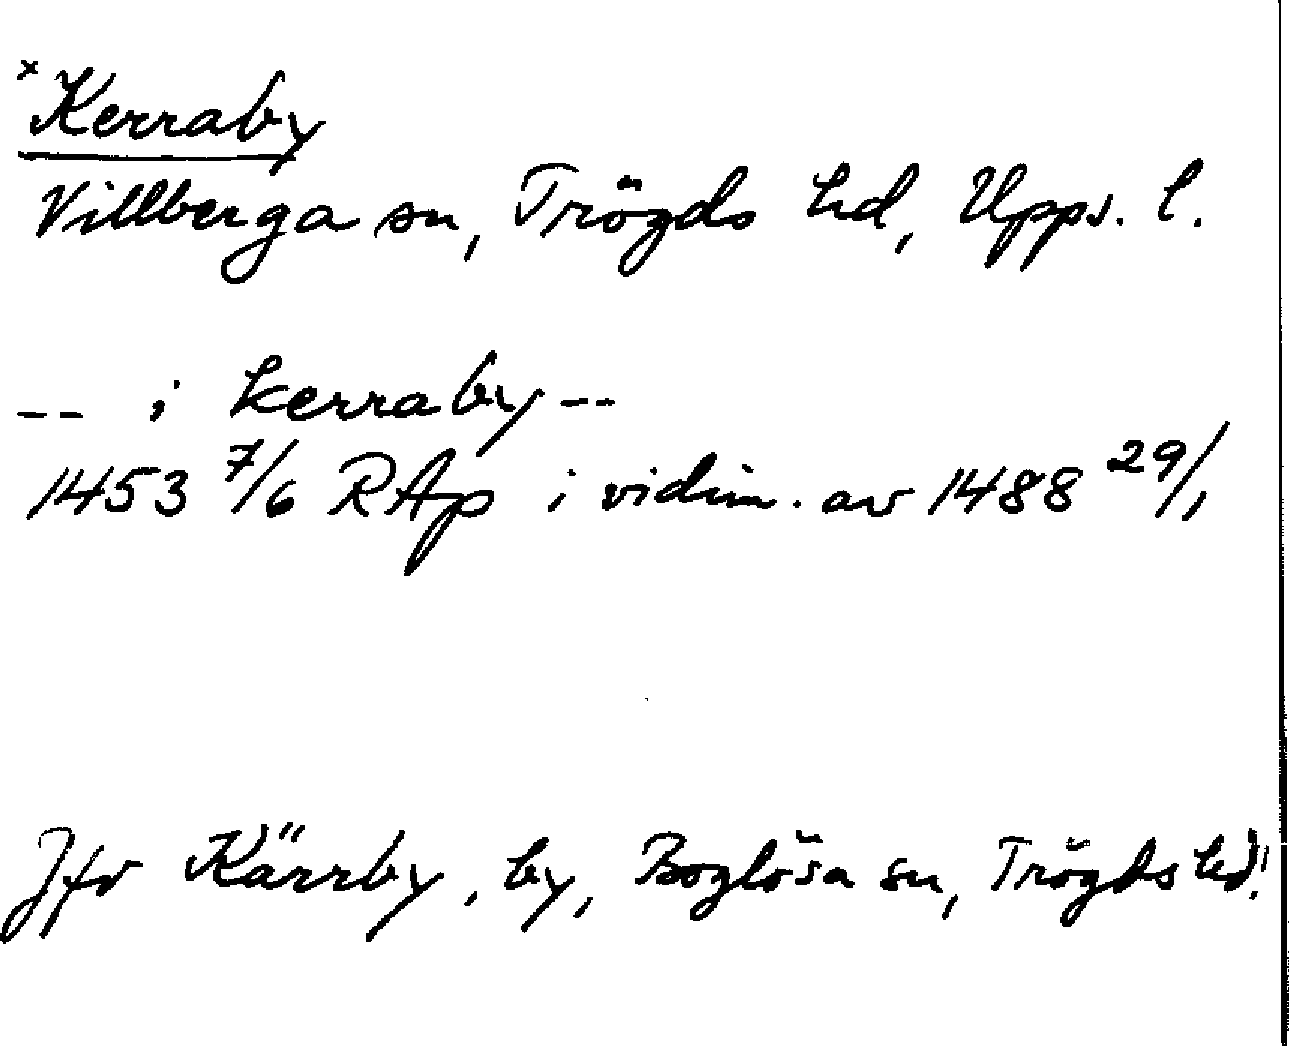 x Kerraby
Villberga sn, Trögds hd, Upps. l.
-- i kerraby --
1453 7/6 RAp i vidim. av 1488 29/1
Jfr Kärrby, by, Boglösa sn, Trögds hd!